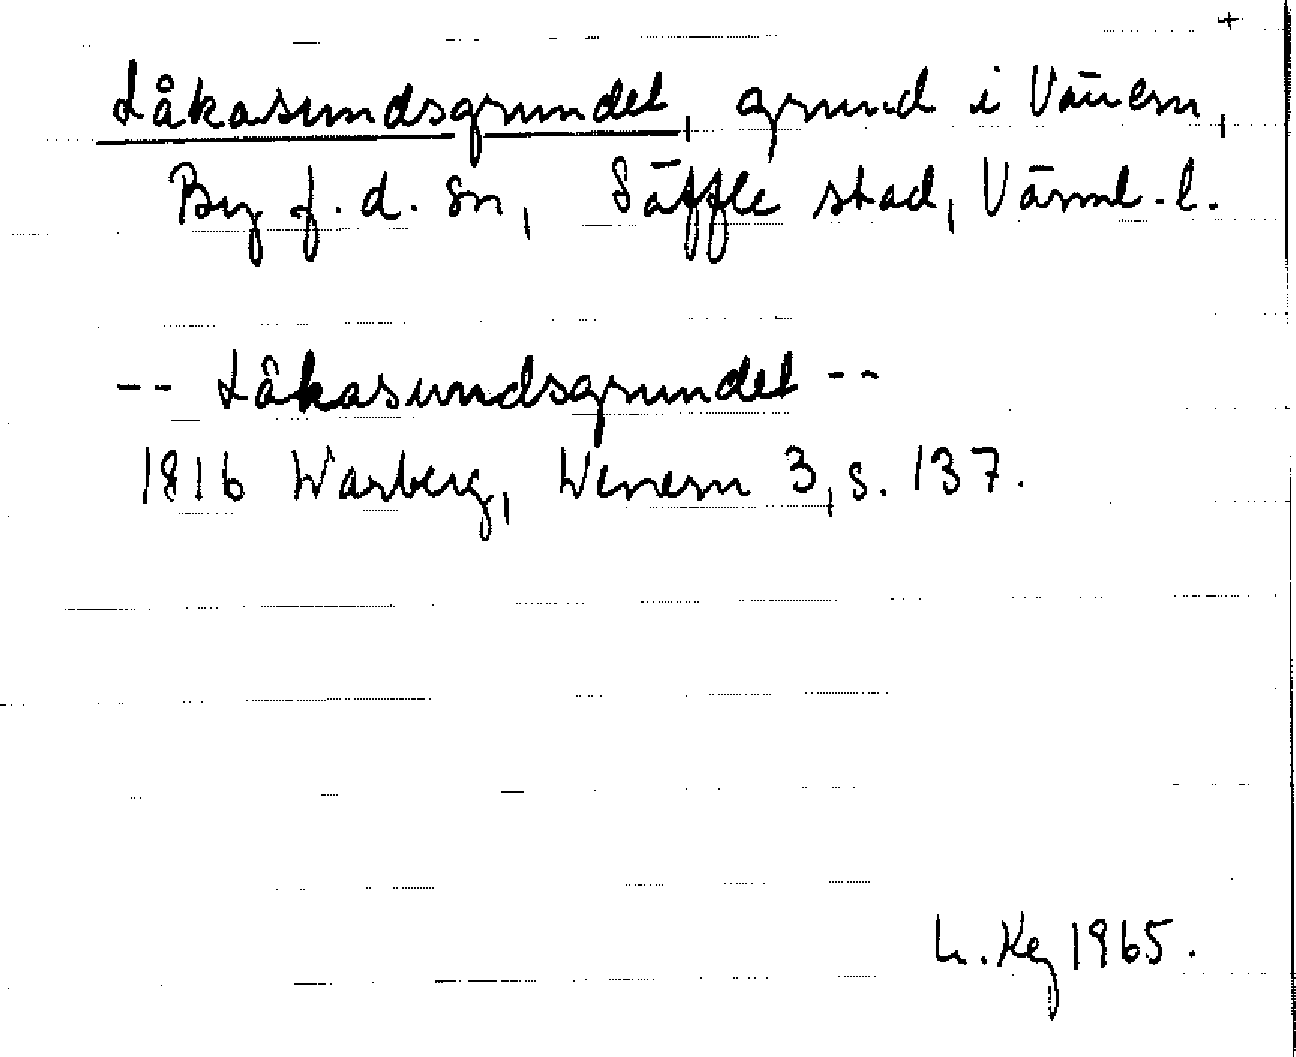 +
Låkasundsgrundet, grund i Vänern,
By f.d. sn, Säffle stad, Värml. l.
-- Låkasundsgrundet --
1816 Warberg, Wenern 3, s. 137.
L. Kg 1965.